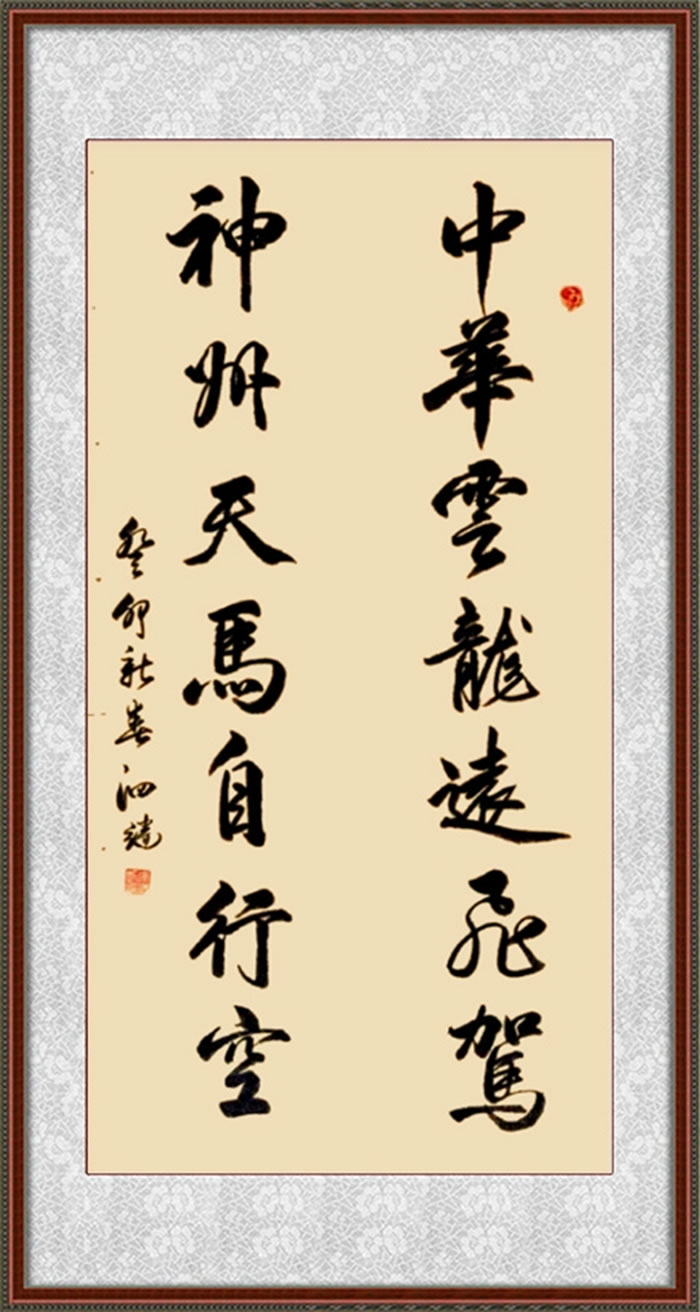 中華雲龍遠飛駕
神州天馬自行空
癸卯新春泗